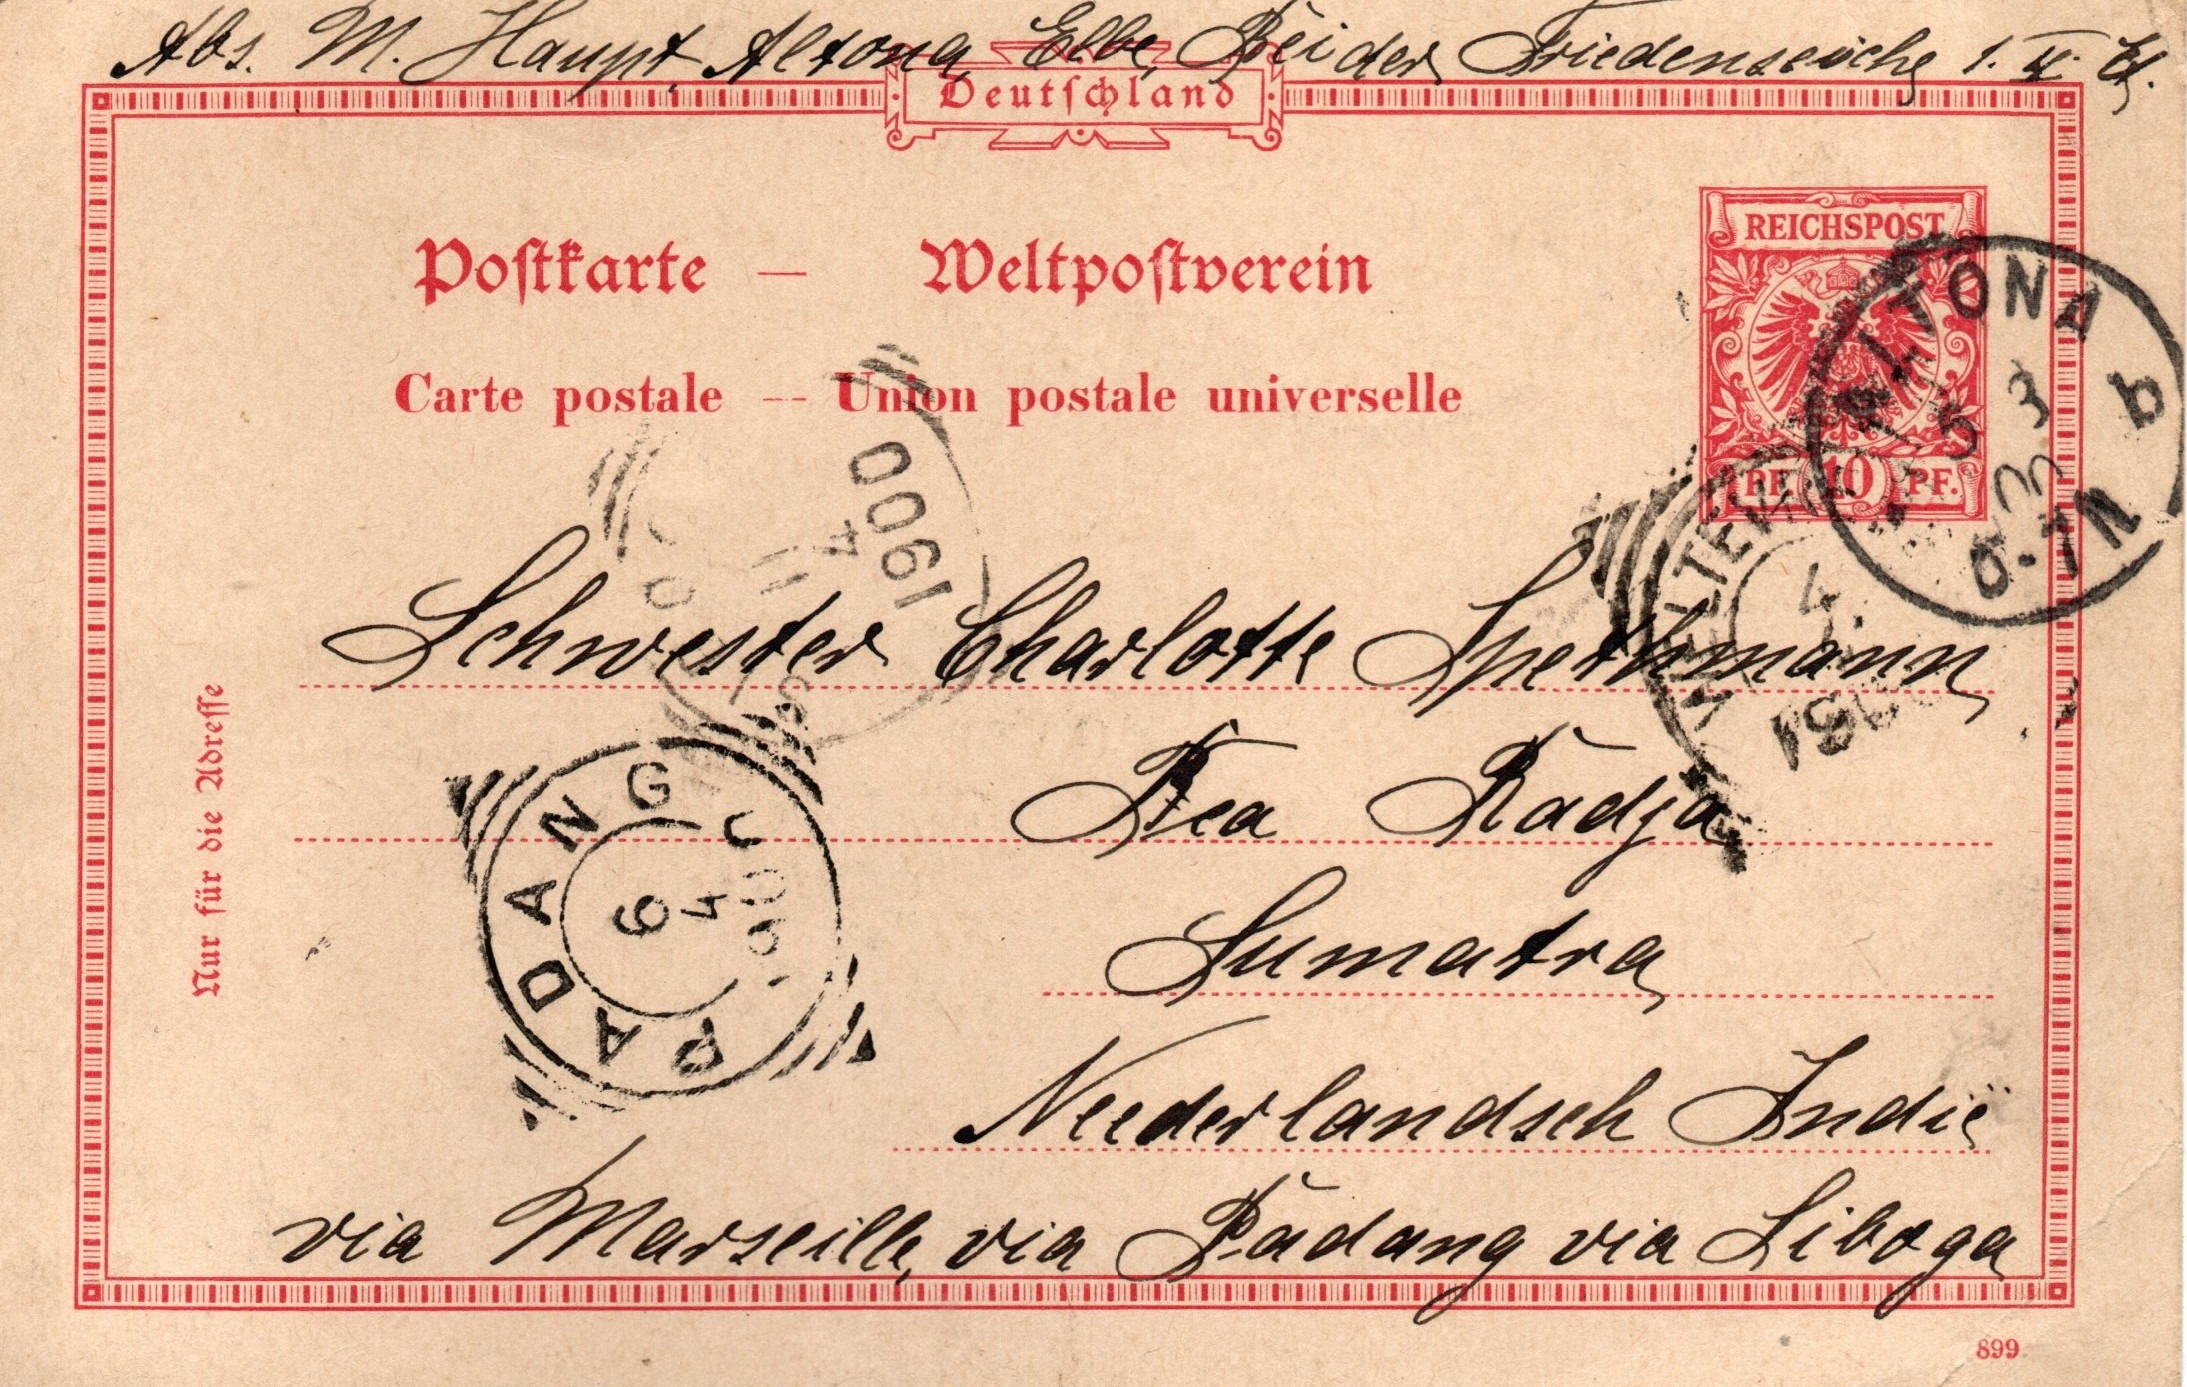 Abs. M. Haupt, Altona, Elbe, Bei der Friedenseiche 1. II. Et.
Deutschland
Postkarte — Weltpostverein
Carte postale — Union postale universelle
REICHSPOST
PF. 10 PF.
ALTONA
b
5 3 00
6-7N
1900
4
11
WELTEV
4.
Schwester Charlotte Spethmann
Pea Radja
Sumatra
Neederlandsch Indië
via Marseille, via Padang via Siboga
PADANG
6
4
1900
Nur für die Adresse
899